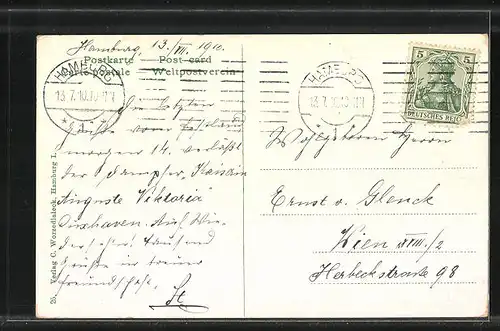 Hamburg, 13./VII. 1910.
Postkarte Post-card
Carte postale Weltpostverein
HAMBURG
13.7.10.
HAMBURG
13.7.10.
5 5
DEUTSCHES REICH
Die letzten
Grüße vom
morgen 14. verläßt
der Dampfer „Kaiserin
Auguste Viktoria"
Cuxhaven. Auf Wie-
dersehen! Tausend
Grüße in treuer
Freundschaft.
Wohlgeboren Herrn
Ernst v. Glenck
Wien XIII./2
Herbeckstraße 98
26. Verlag C. Worzedialeck, Hamburg 1.